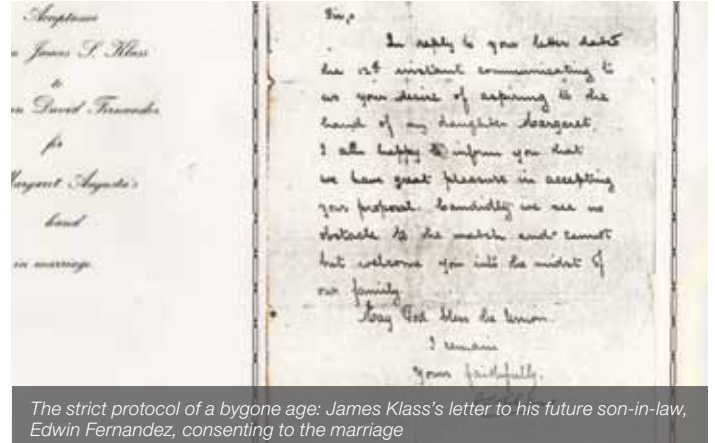 Acceptance
James S. Klass
to
David Fernandez
for
Margaret Augusta's
hand
in marriage
Sir,
In reply to your letter dated
the 12th instant communicating to
us your desire of aspiring to the
hand of my daughter Margaret,
I am happy to inform you that
we have great pleasure in accepting
your proposal. Candidly we see no
obstacle to the match and cannot
but welcome you into the midst of
our family.
May God bless the Union
I remain
Yours faithfully,
The strict protocol of a bygone age: James Klass's letter to his future son-in-law,
Edwin Fernandez, consenting to the marriage